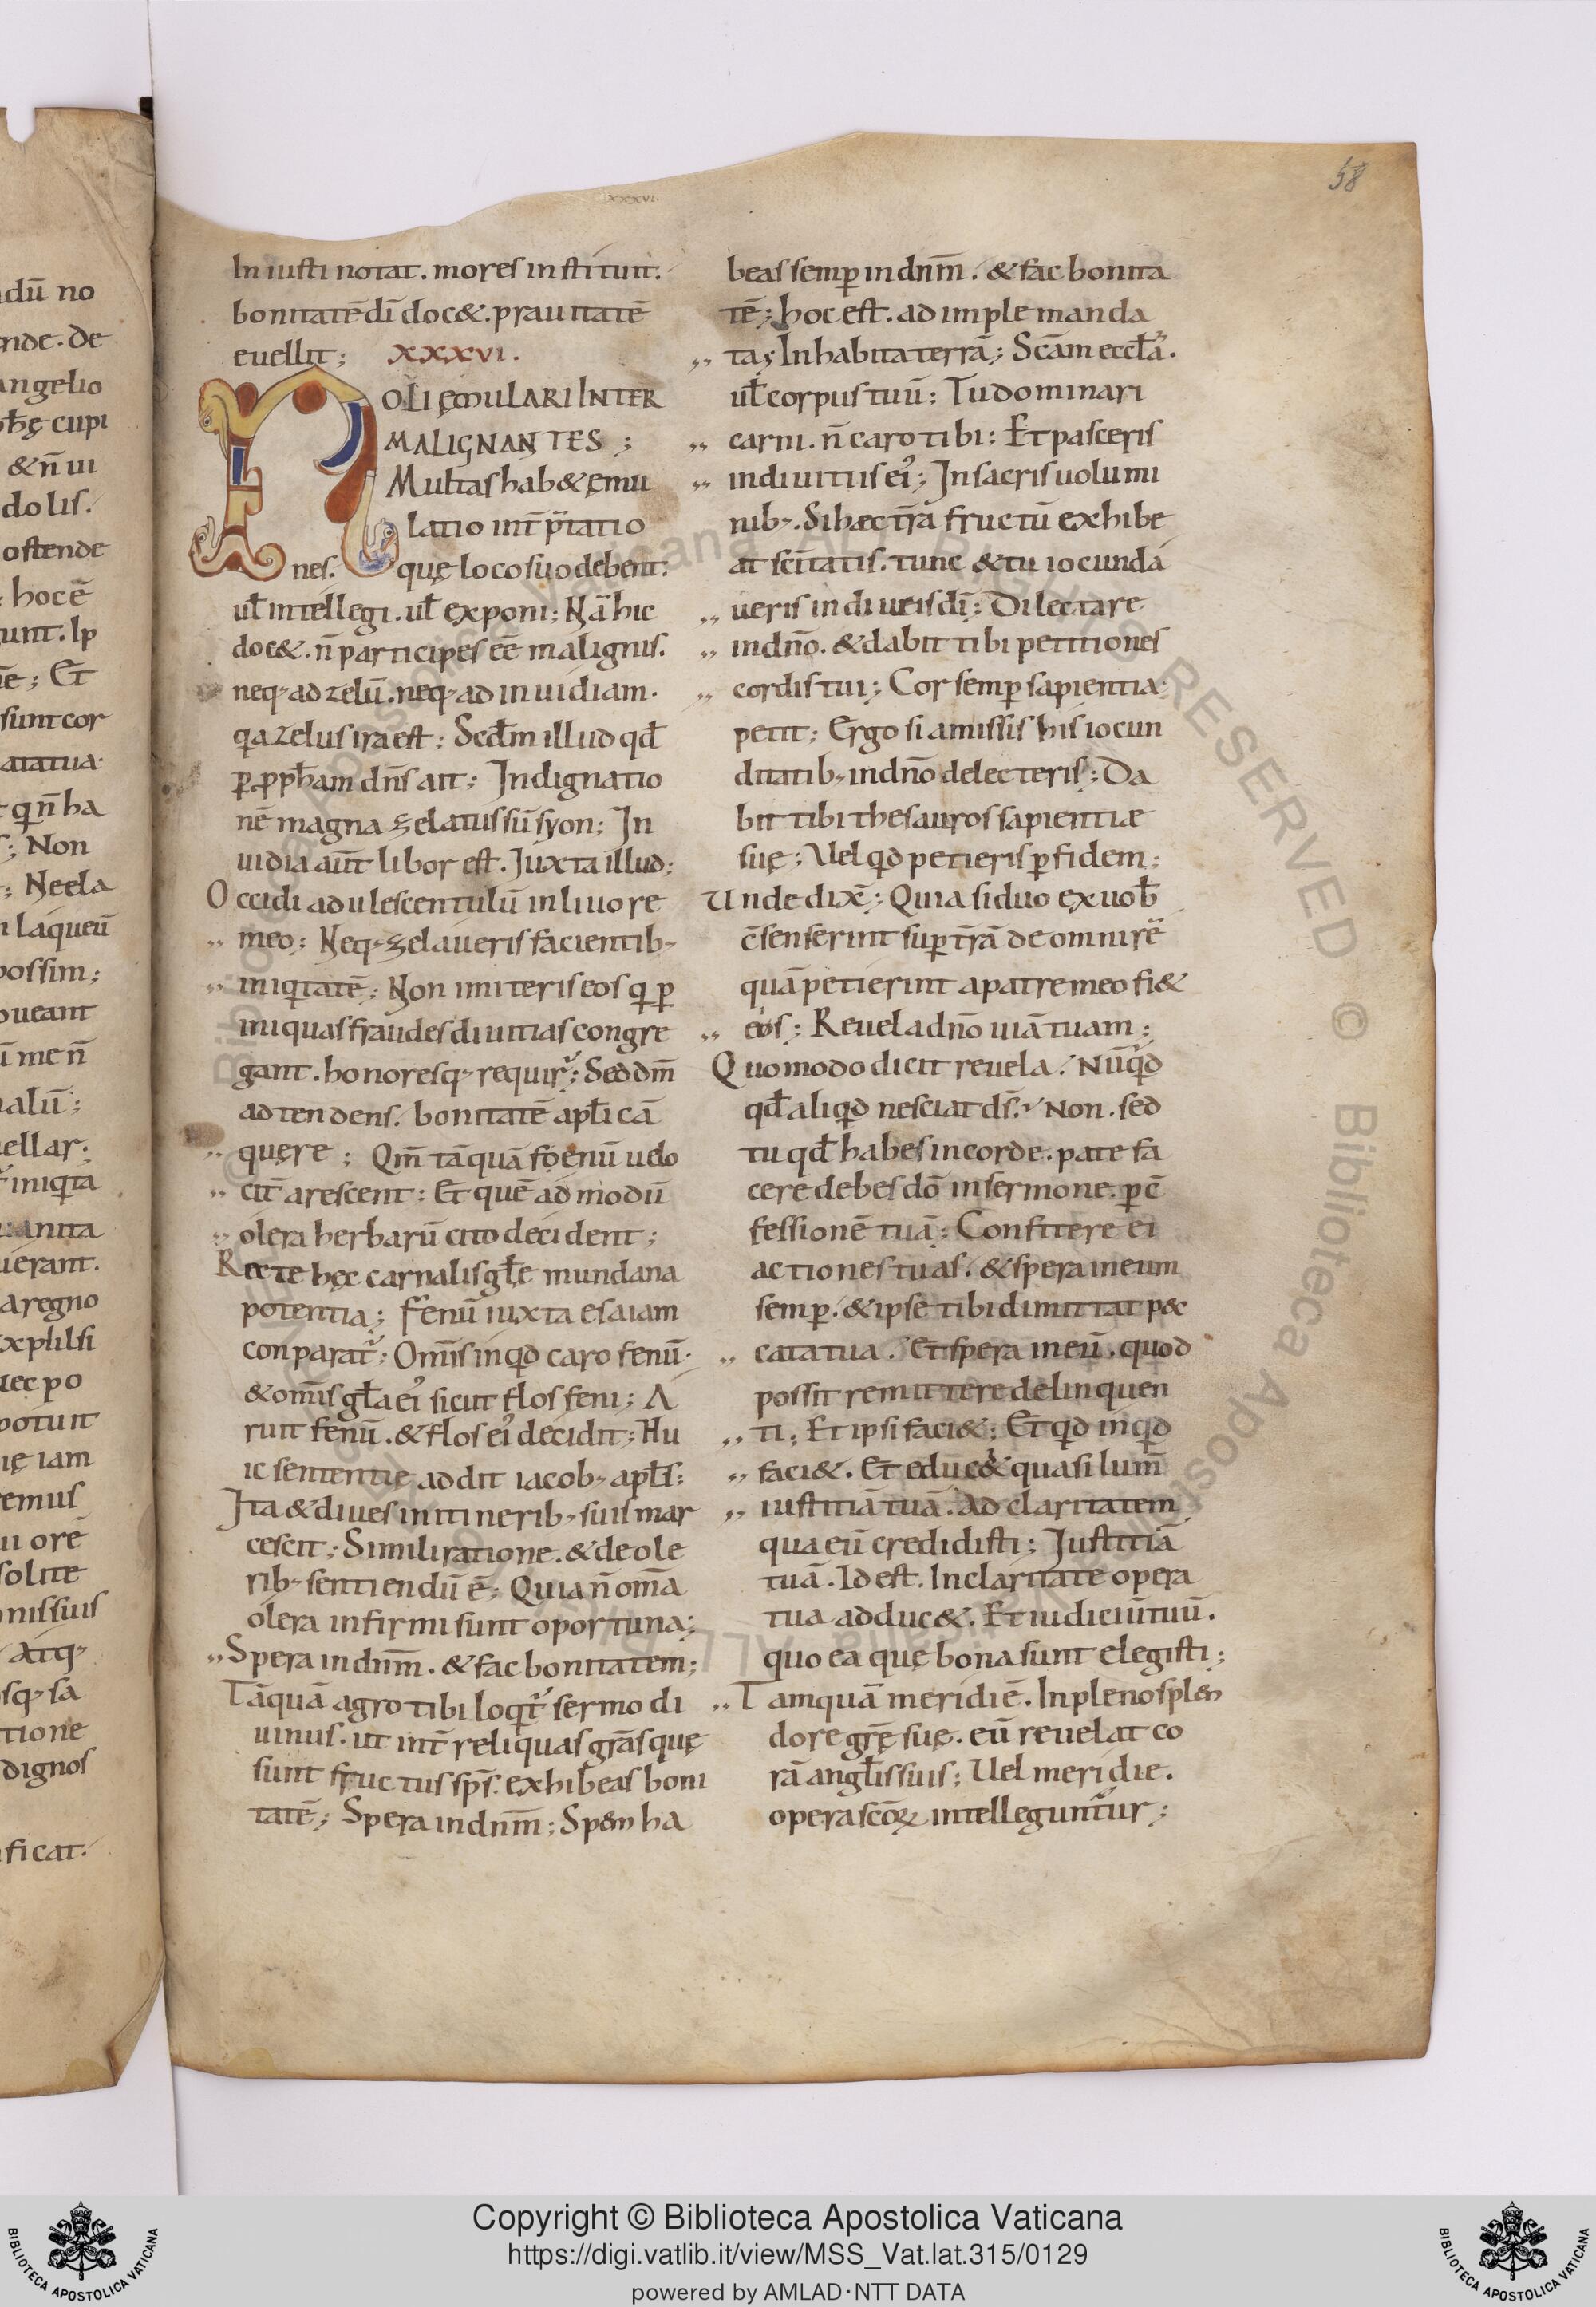 58
xxxvi.
In iusti notat. mores instituit.
bonitatē dī doc&. prauitatē
euellit; XXXVI.
NOLI ĘMULARI INTER
MALIGNANTES;
Multas hab& ęmu
latio int̄p̄tatio
nes. quę loco suo debent:
ul̄ intellegi. ul̄ exponi; Nā hic
doc&. n̄ participes eē malignis.
neq; ad zelū. neq; ad inuidiam.
qa zelus ira est; Scd̄m illud qd̄
p̲ pph̄am dn̄s ait; Indignatio
nē magna zelatus sū syon; In
uidia aūt libor est. Iuxta illud;
Occidi adulescentulū in liuore
meo; Neq; zelaueris facientib;
iniq̇tatē; Non imiteris eos q̇ p̲
iniquas fraudes diuitias congre
gant. honoresq; requir̄; Sed dm̄
adtendens. bonitatē apl̄icā
quęre; Qm̄ tāquā foenū uelo
cit̄ arescent: Et quē admodū
olera herbarū cito decident;
Recte hęc carnalis gl̄ę mundana
potentia; Fenū iuxta esaiam
conparat̄; Om̄is inq̇d caro fenū.
& om̄is gl̄a ei' sicut flos feni; A
ruit fenū. & flos ei' decidit; Hu
ic sententię addit iacob; apl̄s:
Ita & diues in itinerib; suis mar
cescit; Simili ratione. & de ole
rib; sentiendū ē; Quia n̄ om̄a
olera infirmi sunt oportuna;
Spera in dnm̄. & fac bonitatem;
Tāquā agro tibi loq̇t̄ sermo di
uinus. ut int̄ reliquas grās quę
sunt fructus sp̄s. exhibeas boni
tatē; Spera in dnm̄; Spem ha
beas semp̲ in dnm̄. & fac bonita
tē; hoc est. ad imple manda
ta; Inhabita terrā; Scām eccl̄ā.
ul̄ corpus tuū: Tu dominari
carni. n̄ caro tibi: Et pasceris
in diuitiis ei'; In sacris uolumi
nib;. Si hæc t̄rā fructū exhibe
at scīta&tis. tunc & tu iocunda
ueris in diuitiis dī; Dilectare
in dn̄o. & dabit tibi petitiones
cordis tui; Cor semp̲ sapientiā
petit; Ergo si amissis his iocun
ditatib; in dn̄o delecteris; Da
bit tibi thesauros sapientiæ
suę; Uel qd petieris p̲ fidem;
Unde dix̄; Quia si duo ex uob̄
c̄senserint sup̲ t̄rā de omni rē
quā petierint a patre meo fi&
eis; Reuela dn̄o uiā tuam;
Quomodo dicit reuela. Nūq̇d
qd̄ aliq̇d nesciat ds̄. Non. sed
tu qd̄ habes in corde. pate fa
cere debes dō in sermone. p̲ c̄
fessionē tuā; Confitere ei
actiones tuas. & spera in eum
semp̲. & ipse tibi dimittat pec
cata tua. Et spera in eū. quod
possit remittere delinquen
ti; Et ipsi faci&; Et q̇d inq̇d
faci&. Et educ& quasi lum̄
iustitiā tuā. Ad claritatem
qua eū credidisti; Iustitiā
tuā. Id est. In claritate opera
tua adduc&. Et iudiciū tuū.
quo ea quę bona sunt elegisti;
Tamquā meridiē. In pleno splen
dore gr̄ę suę. eū reuelat co
rā angl̄is suis; Uel meridie.
opera scōꝝ intelleguntur;
Copyright © Biblioteca Apostolica Vaticana
https://digi.vatlib.it/view/MSS_Vat.lat.315/0129
powered by AMLAD·NTT DATA
BIBLIOTECA APOSTOLICA VATICANA
BIBLIOTECA APOSTOLICA VATICANA